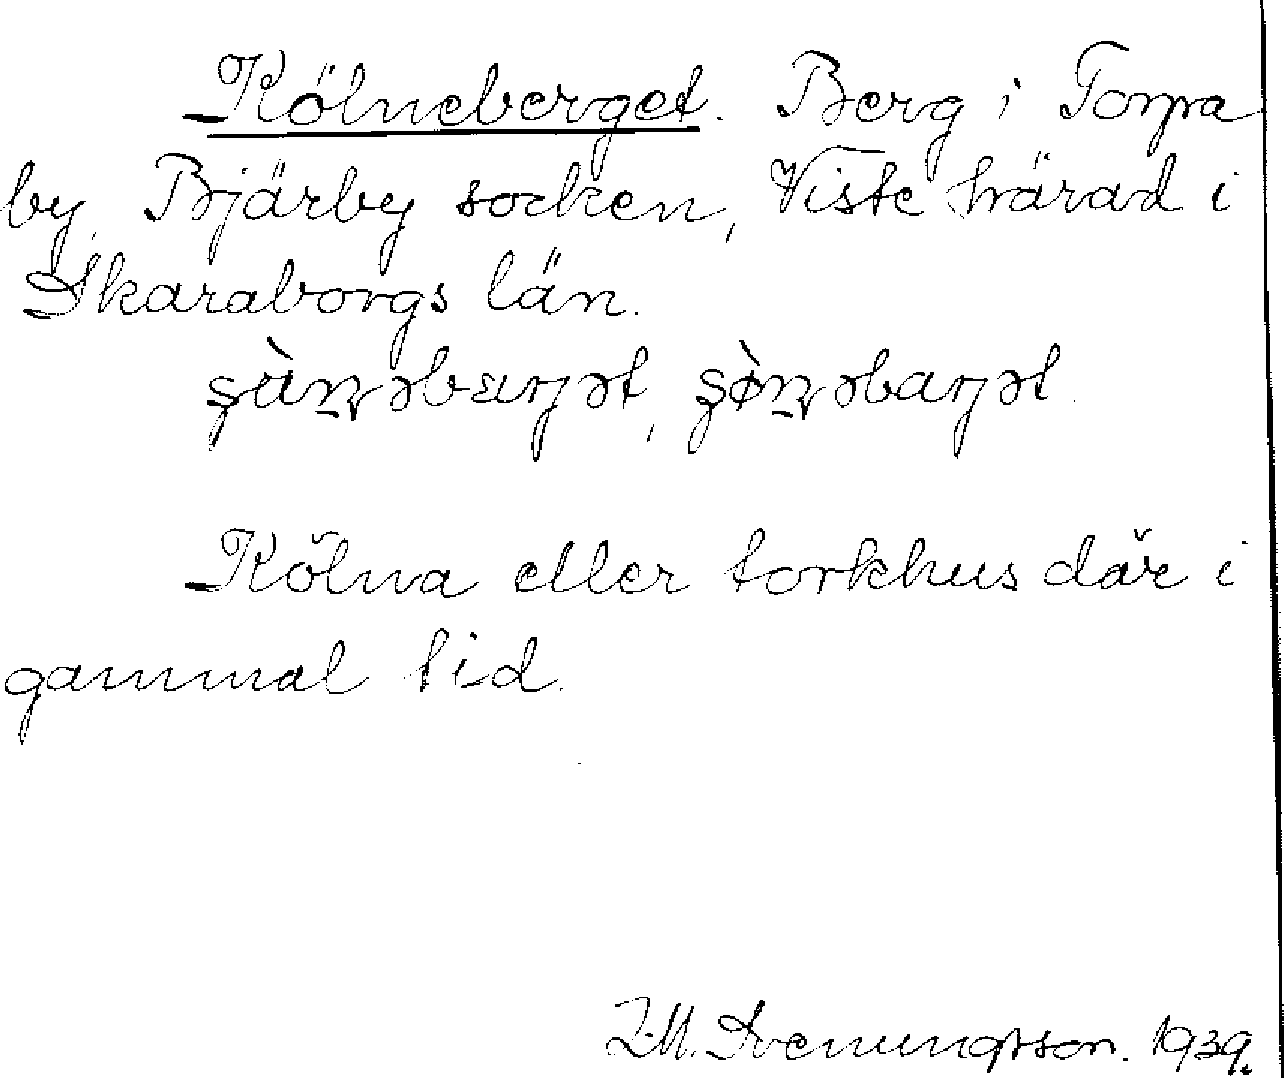 Kölneberget. Berg i Torpa
by, Bjärby socken, Viste härad i
Skaraborgs län.
Kölna eller torkhus där i
gammal tid.
Svenungsson. 1939.